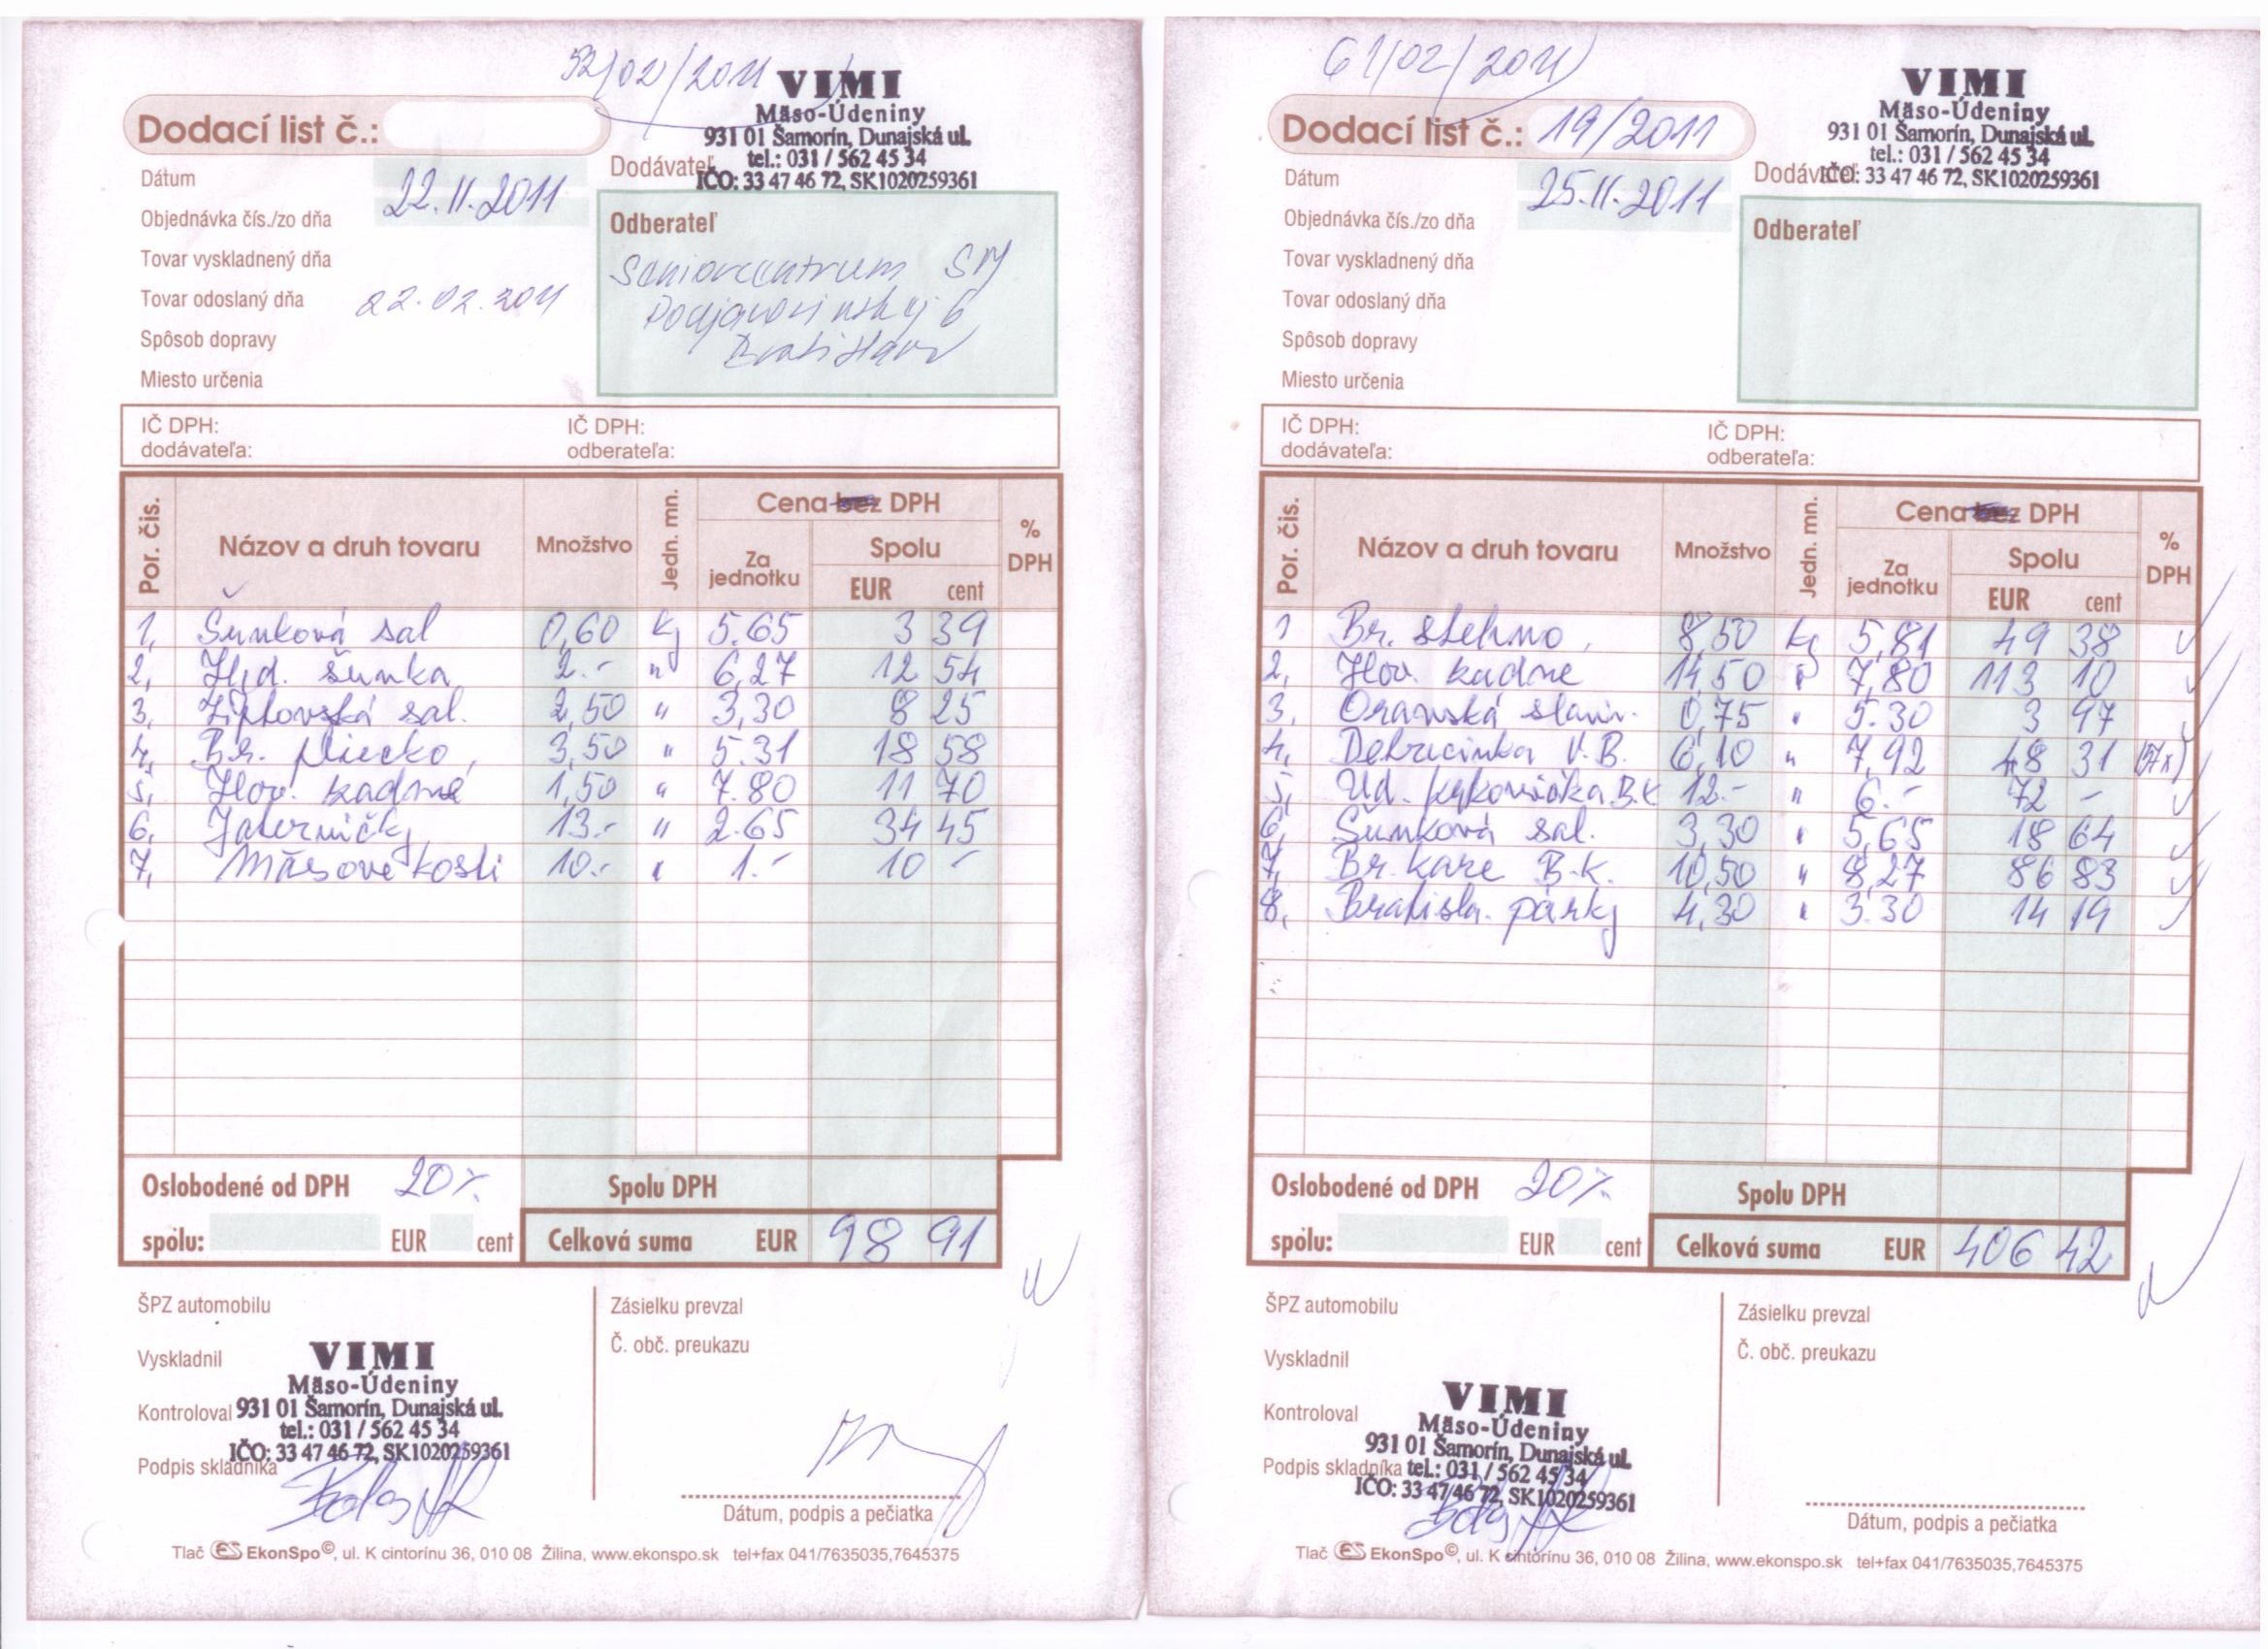 52/02/2011
VIMI
Mäso-Údeniny
931 01 Šamorín, Dunajská ul.
tel.: 031 / 562 45 34
IČO: 33 47 46 72, SK1020259361
Dodací list č.:
Dodávateľ
Dátum 22.II.2011
Objednávka čís./zo dňa
Tovar vyskladnený dňa
Tovar odoslaný dňa 22.02.2011
Spôsob dopravy
Miesto určenia
Odberateľ
Seniorcentrum SM
6
Bratislava
IČ DPH:
dodávateľa:
IČ DPH:
odberateľa:
Por. čís. Názov a druh tovaru Množstvo Jedn. mn. Cena bez DPH Za jednotku Spolu EUR cent % DPH
1, Šunková sal 0,60 kg 5.65 3 39
2, Hyd. šunka 2.- " 6,27 12 54
3, Liptovská sal. 2,50 " 3,30 8 25
4, Br. pliecko, 3,50 " 5.31 18 58
5, Hov. zadné 1,50 " 7.80 11 70
6, Jaterničky 13.- " 2.65 34 45
7, Mäsové kosti 10.- " 1.- 10 -
Oslobodené od DPH 20% Spolu DPH
spolu: EUR cent Celková suma EUR 98 91
ŠPZ automobilu
Vyskladnil
Kontroloval
Podpis skladníka
VIMI
Mäso-Údeniny
931 01 Šamorín, Dunajská ul.
tel.: 031 / 562 45 34
IČO: 33 47 46 72, SK1020259361
Zásielku prevzal
Č. obč. preukazu
Dátum, podpis a pečiatka
Tlač ES EkonSpo©, ul. K cintorínu 36, 010 08 Žilina, www.ekonspo.sk tel+fax 041/7635035,7645375
61/02/2011
VIMI
Mäso-Údeniny
931 01 Šamorín, Dunajská ul.
tel.: 031 / 562 45 34
IČO: 33 47 46 72, SK1020259361
Dodací list č.: 19/2011
Dodávateľ
Dátum 25.II.2011
Objednávka čís./zo dňa
Tovar vyskladnený dňa
Tovar odoslaný dňa
Spôsob dopravy
Miesto určenia
Odberateľ
IČ DPH:
dodávateľa:
IČ DPH:
odberateľa:
Por. čís. Názov a druh tovaru Množstvo Jedn. mn. Cena bez DPH Za jednotku Spolu EUR cent % DPH
1 Br. stehno, 8,50 kg 5,81 49 38
2, Hov. zadné 14,50 " 7,80 113 10
3, Oravská slanin. 0,75 " 5.30 3 97
4, Debrecinka V.B. 6,10 " 7,92 48 31
5, Ud. krkovička B.K 12.- " 6.- 72 -
6, Šunková sal. 3,30 " 5,65 18 64
7, Br. kare B.K. 10,50 " 8,27 86 83
8, Bratisla. párky 4,30 " 3.30 14 19
Oslobodené od DPH 20% Spolu DPH
spolu: EUR cent Celková suma EUR 406 42
ŠPZ automobilu
Vyskladnil
Kontroloval
Podpis skladníka
VIMI
Mäso-Údeniny
931 01 Šamorín, Dunajská ul.
tel.: 031 / 562 45 34
IČO: 33 47 46 72, SK1020259361
Zásielku prevzal
Č. obč. preukazu
Dátum, podpis a pečiatka
Tlač ES EkonSpo©, ul. K cintorínu 36, 010 08 Žilina, www.ekonspo.sk tel+fax 041/7635035,7645375